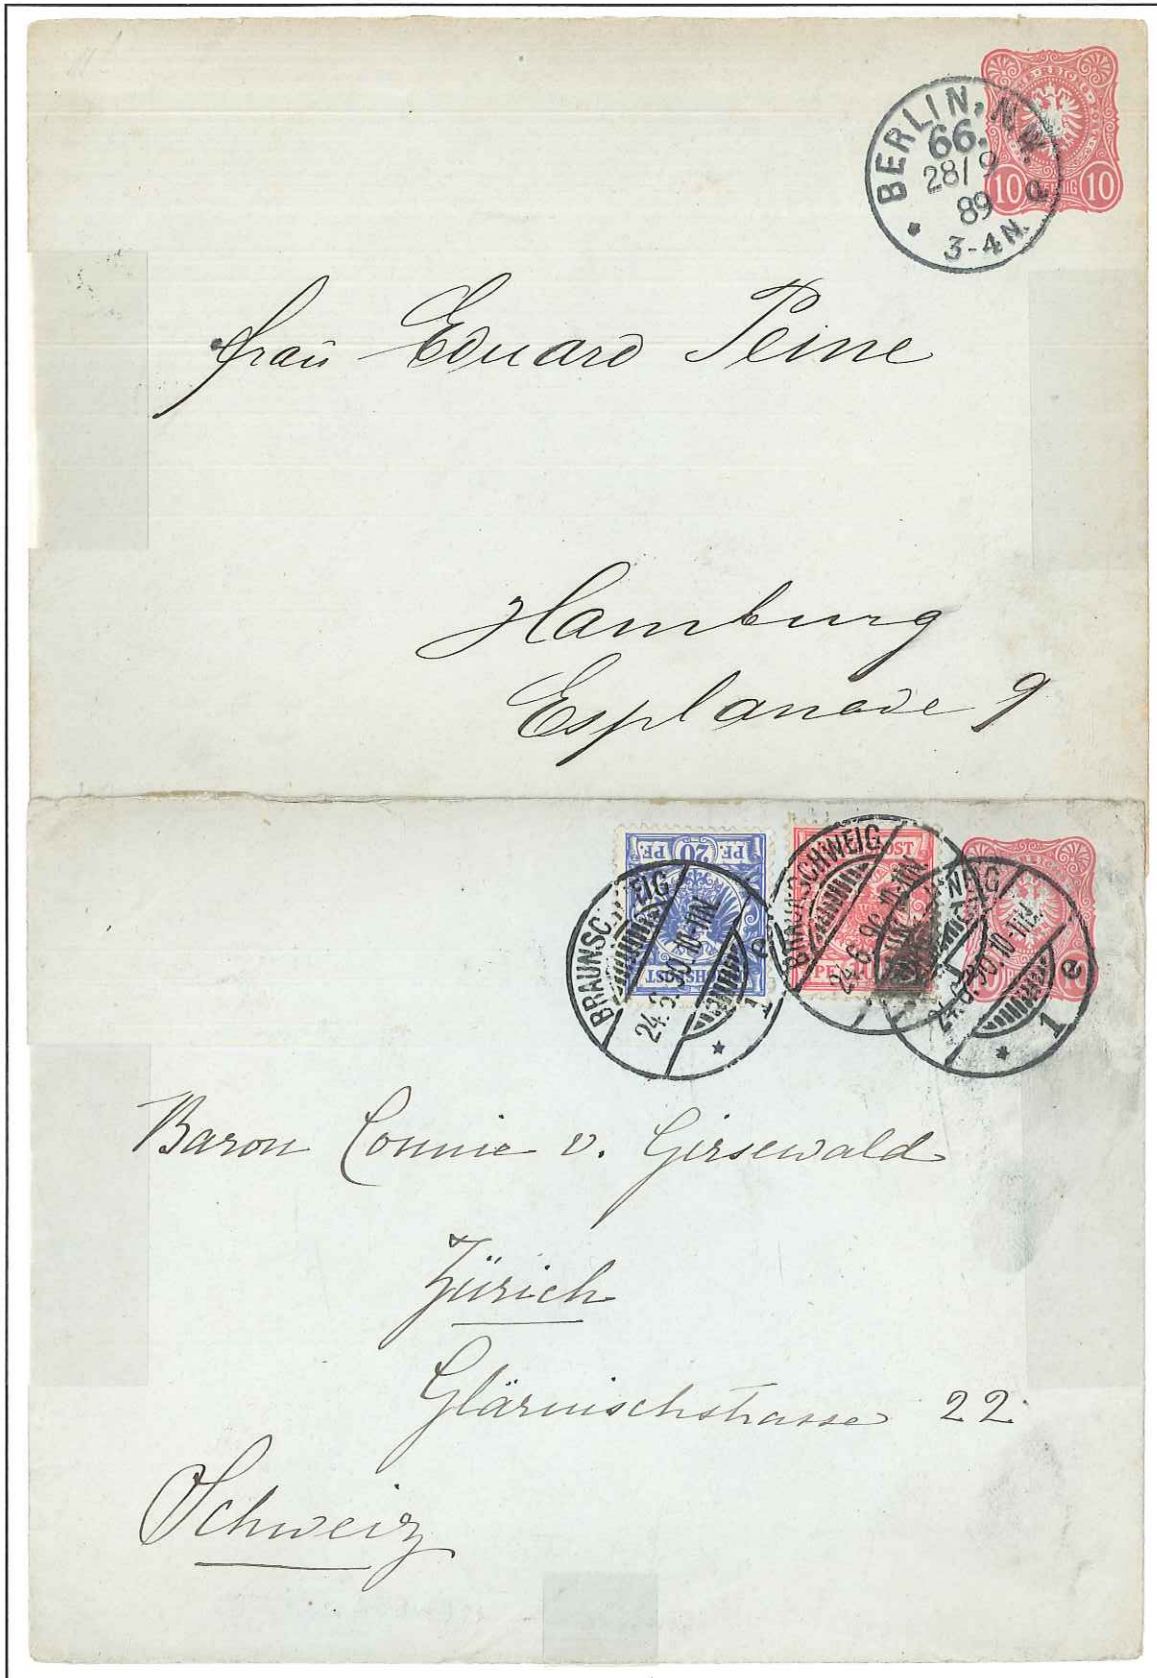 BERLIN, N.W.
66.
28/9
89
3-4N.
10 10
Frau Eduard Peine
Hamburg
Esplanade 9
PF. 20 PF.
BRAUNSCHWEIG
24.6.90.10-11N.
1 e
BRAUNSCHWEIG
24.6.90.10-11N.
24.6.90.10-11N.
1 e
Baron Connie v. Girsewald
Zürich
Glärnischstrasse 22.
Schweiz